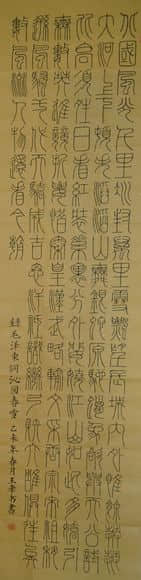 北國風光千里冰封萬里雪飄望長城内外惟餘莽莽
大河上下頓失滔滔山舞銀蛇原馳蠟象欲與天公試
比高須晴日看紅裝素裹分外妖嬈江山如此多嬌引
無數英雄競折腰惜秦皇漢武略輸文采唐宗宋祖稍
遜風騷一代天驕成吉思汗只識彎弓射大雕俱往矣
數風流人物還看今朝
錄毛澤東詞沁園春雪 乙未年春月王書